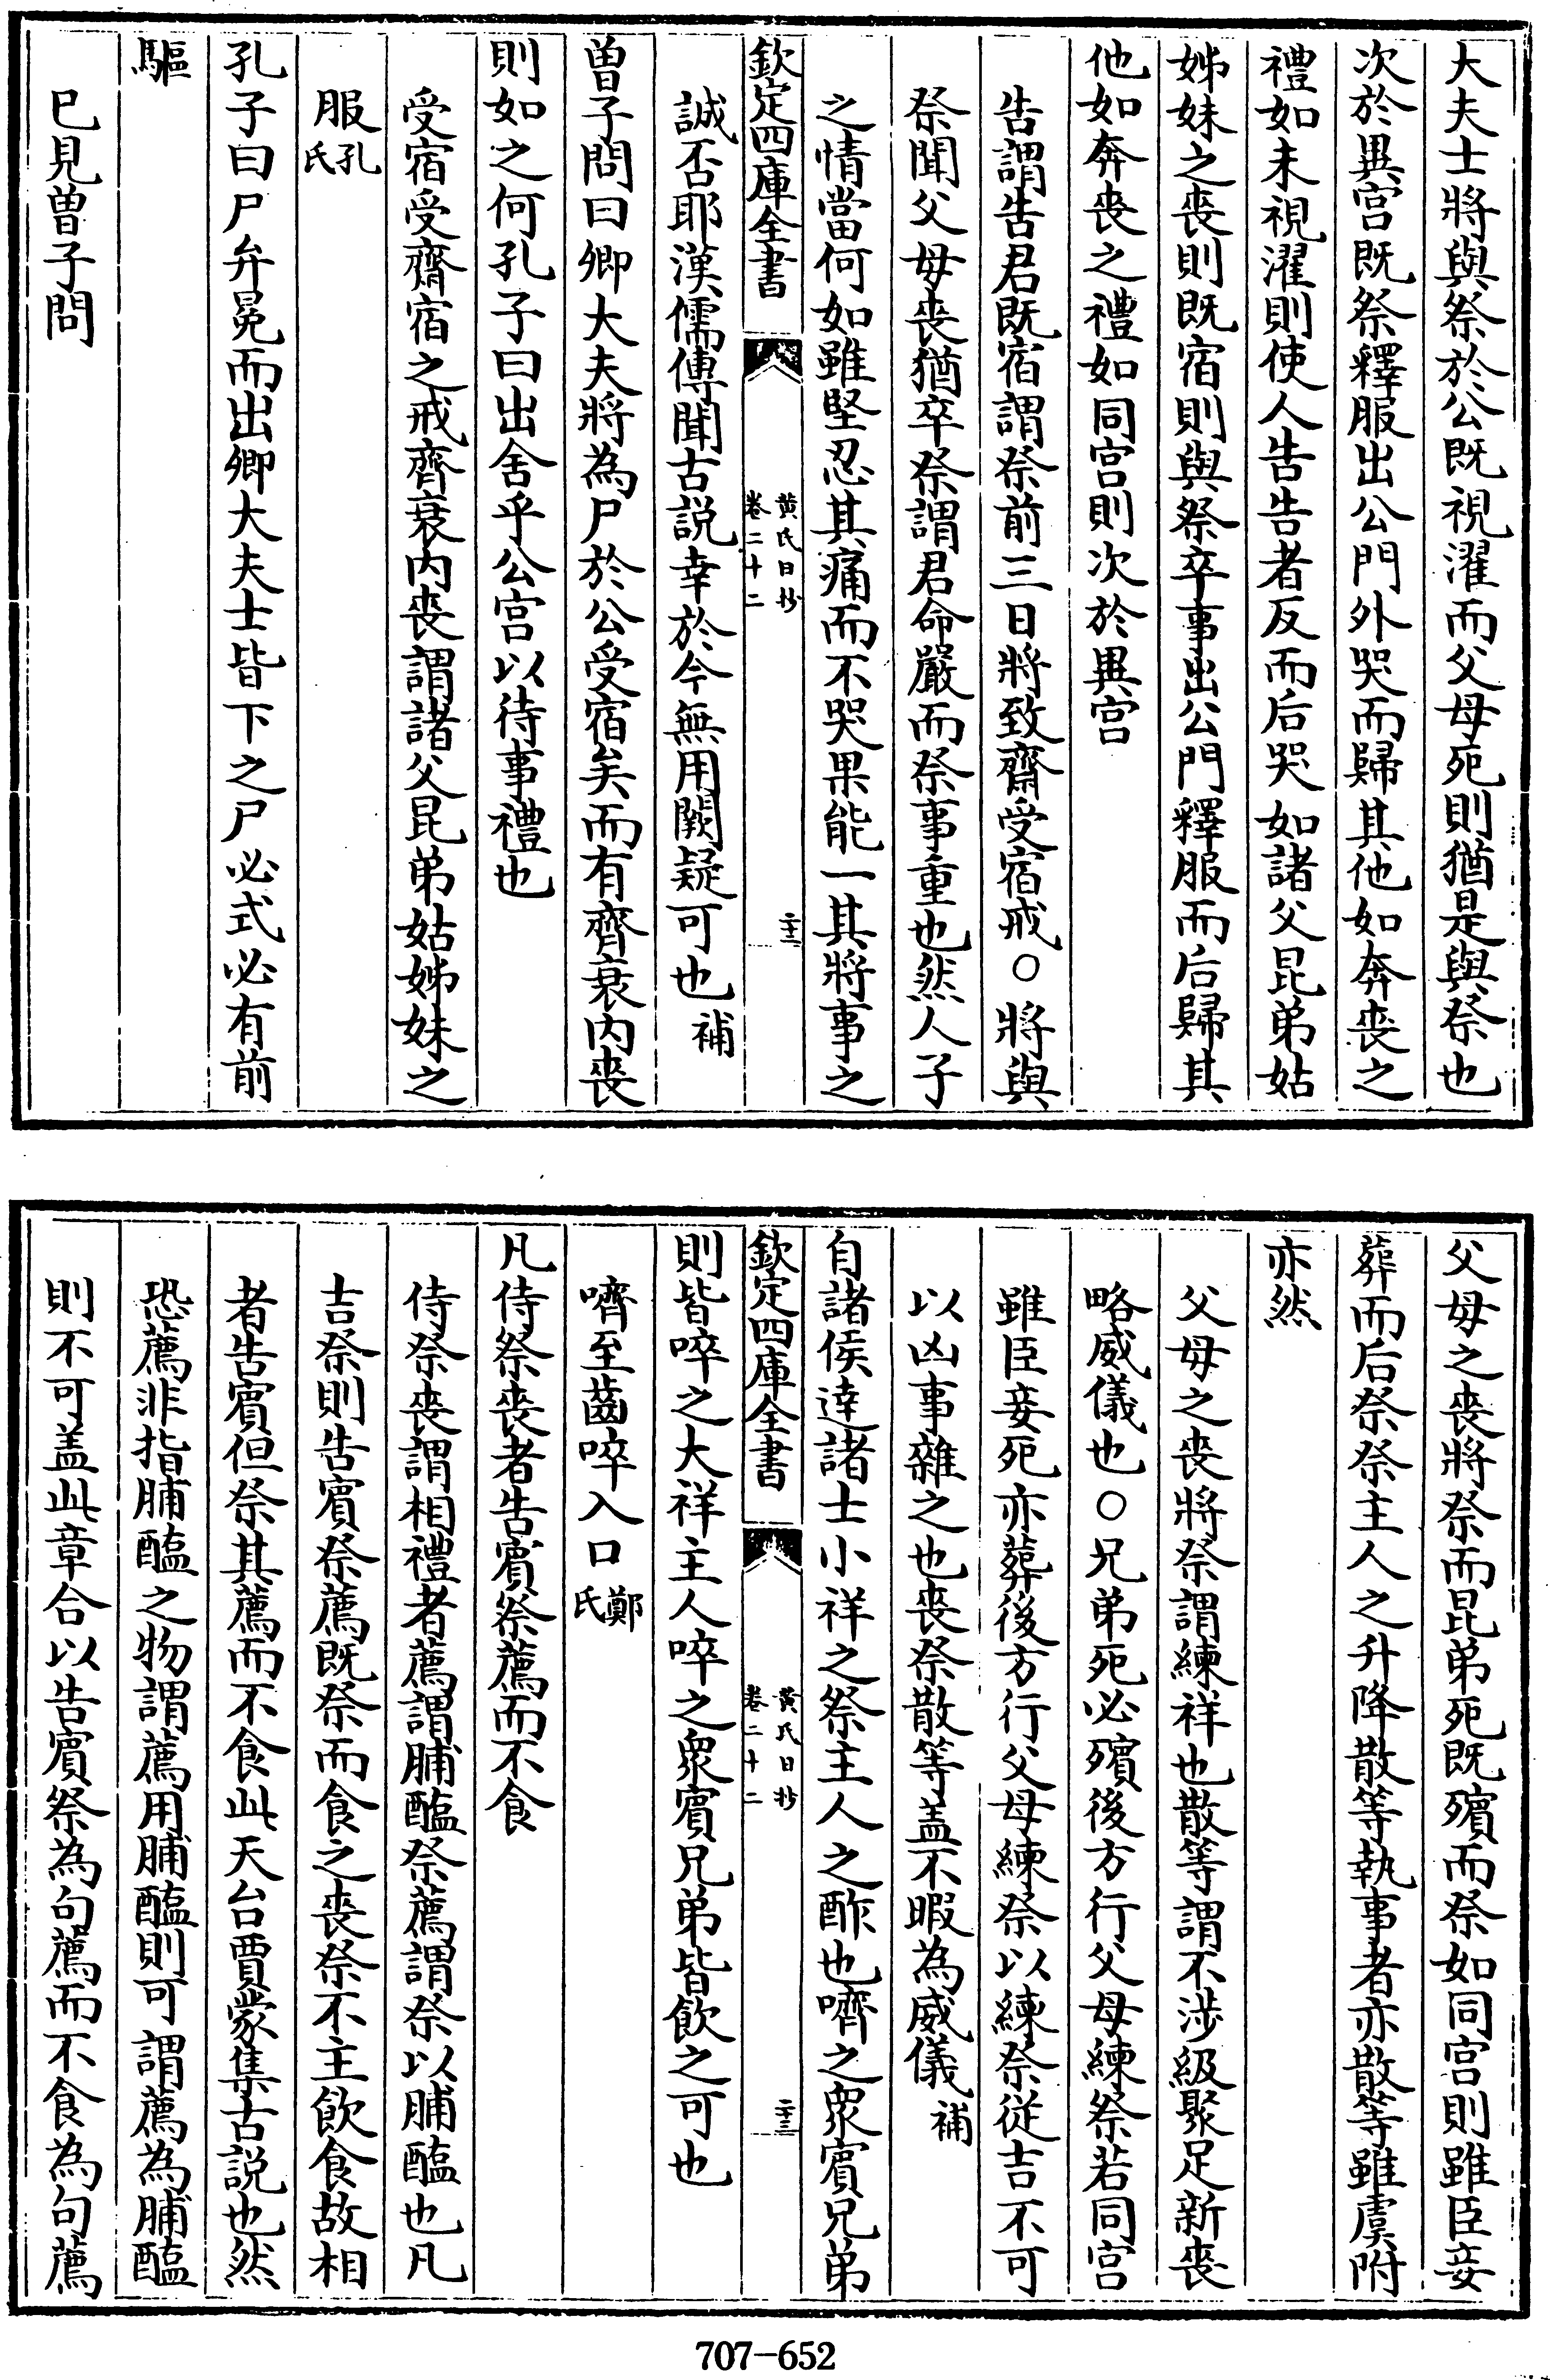 大夫士將與祭於公既視濯而父母死則猶是與祭也
次於異宫既祭釋服出公門外哭而歸其他如奔喪之
禮如未視濯則使人告告者反而后哭如諸父昆弟姑
姊妹之喪則既宿則與祭卒事出公門釋服而后歸其
他如奔喪之禮如同宫則次於異宫
告謂告君既宿謂祭前三日將致齋受宿戒○將與
祭聞父母喪猶卒祭謂君命嚴而祭事重也然人子
之情當何如雖堅忍其痛而不哭果能一其將事之
欽定四庫全書
黄氏日抄
卷二十二
二十二
誠否耶漢儒傳聞古説幸於今無用闕疑可也補
曽子問曰卿大夫將為尸於公受宿矣而有齊衰内喪
則如之何孔子曰出舍乎公宫以待事禮也
受宿受齋宿之戒齊衰内喪謂諸父昆弟姑姊妹之
服孔氏
孔子曰尸弁冕而出卿大夫士皆下之尸必式必有前
驅
已見曽子問
父母之喪將祭而昆弟死既殯而祭如同宫則雖臣妾
葬而后祭祭主人之升降散等執事者亦散等雖虞附
亦然
父母之喪將祭謂練祥也散等謂不涉級聚足新喪
略威儀也○兄弟死必殯後方行父母練祭若同宫
雖臣妾死亦葬後方行父母練祭以練祭從吉不可
以凶事雜之也喪祭散等盖不暇為威儀補
自諸侯達諸士小祥之祭主人之酢也嚌之衆賓兄弟
欽定四庫全書
黄氏日抄
卷二十二
二十三
則皆啐之大祥主人啐之衆賓兄弟皆飲之可也
嚌至齒啐入口鄭氏
凡侍祭喪者告賓祭薦而不食
侍祭喪謂相禮者薦謂脯醢祭薦謂祭以脯醢也凡
吉祭則告賓祭薦既祭而食之喪祭不主飲食故相
者告賓但祭其薦而不食此天台賈蒙集古説也然
恐薦非指脯醢之物謂薦用脯醢則可謂薦為脯醢
則不可盖此章合以告賓祭為句薦而不食為句薦
707-652